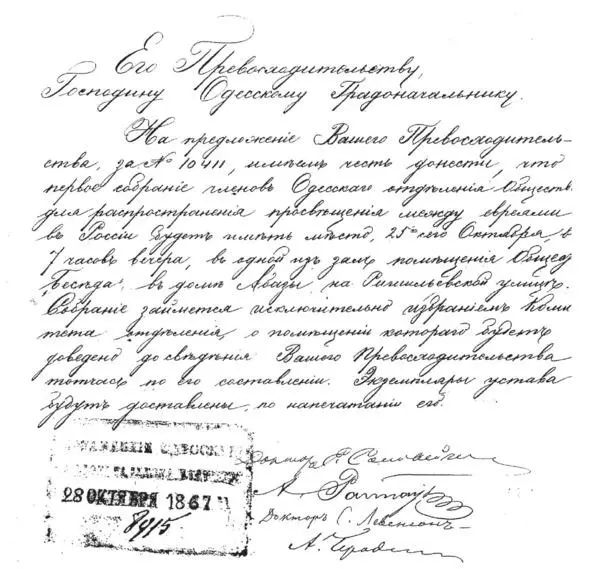 Его Превосходительству,
Господину Одесскому Градоначальнику.
На предложенiе Вашего Превосходитель-
ства, за № 10411, имѣемъ честь донести, что
первое собранiе членовъ Одесскаго отдѣленiя Обществ.
для распространенiя просвѣщенiя между евреями
въ Россiи будетъ имѣть мѣсто, 25го сего Октября, в
7 часовъ вечера, въ одной изъ залъ помѣщенiя Общес
"Бесѣда", въ домѣ Абазы, на Ришельевской улицѣ.
Собранiе займется исключительно избранiемъ Коми
тета отдѣленiя, о помѣщенiи котораго будетъ
доведено до свѣдѣнiя Вашего Превосходительства
тотчасъ по его составленiи. Экземпляры устава
будутъ доставлены, по напечатанiи его.
Докторъ Э. Соловейчик
28 ОКТЯБРЯ 1867
8915
Докторъ С.
А.